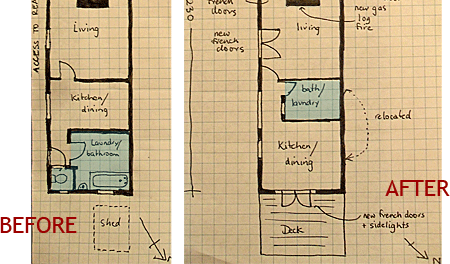 ACCESS TO REA
Living
Kitchen/
dining
Laundry/
bathroom
Shed
BEFORE
230
french
doors
new gas
log
fire
new
french doors
living
bath/
laundry
relocated
Kitchen/
dining
AFTER
new french doors
+ sidelights
Deck